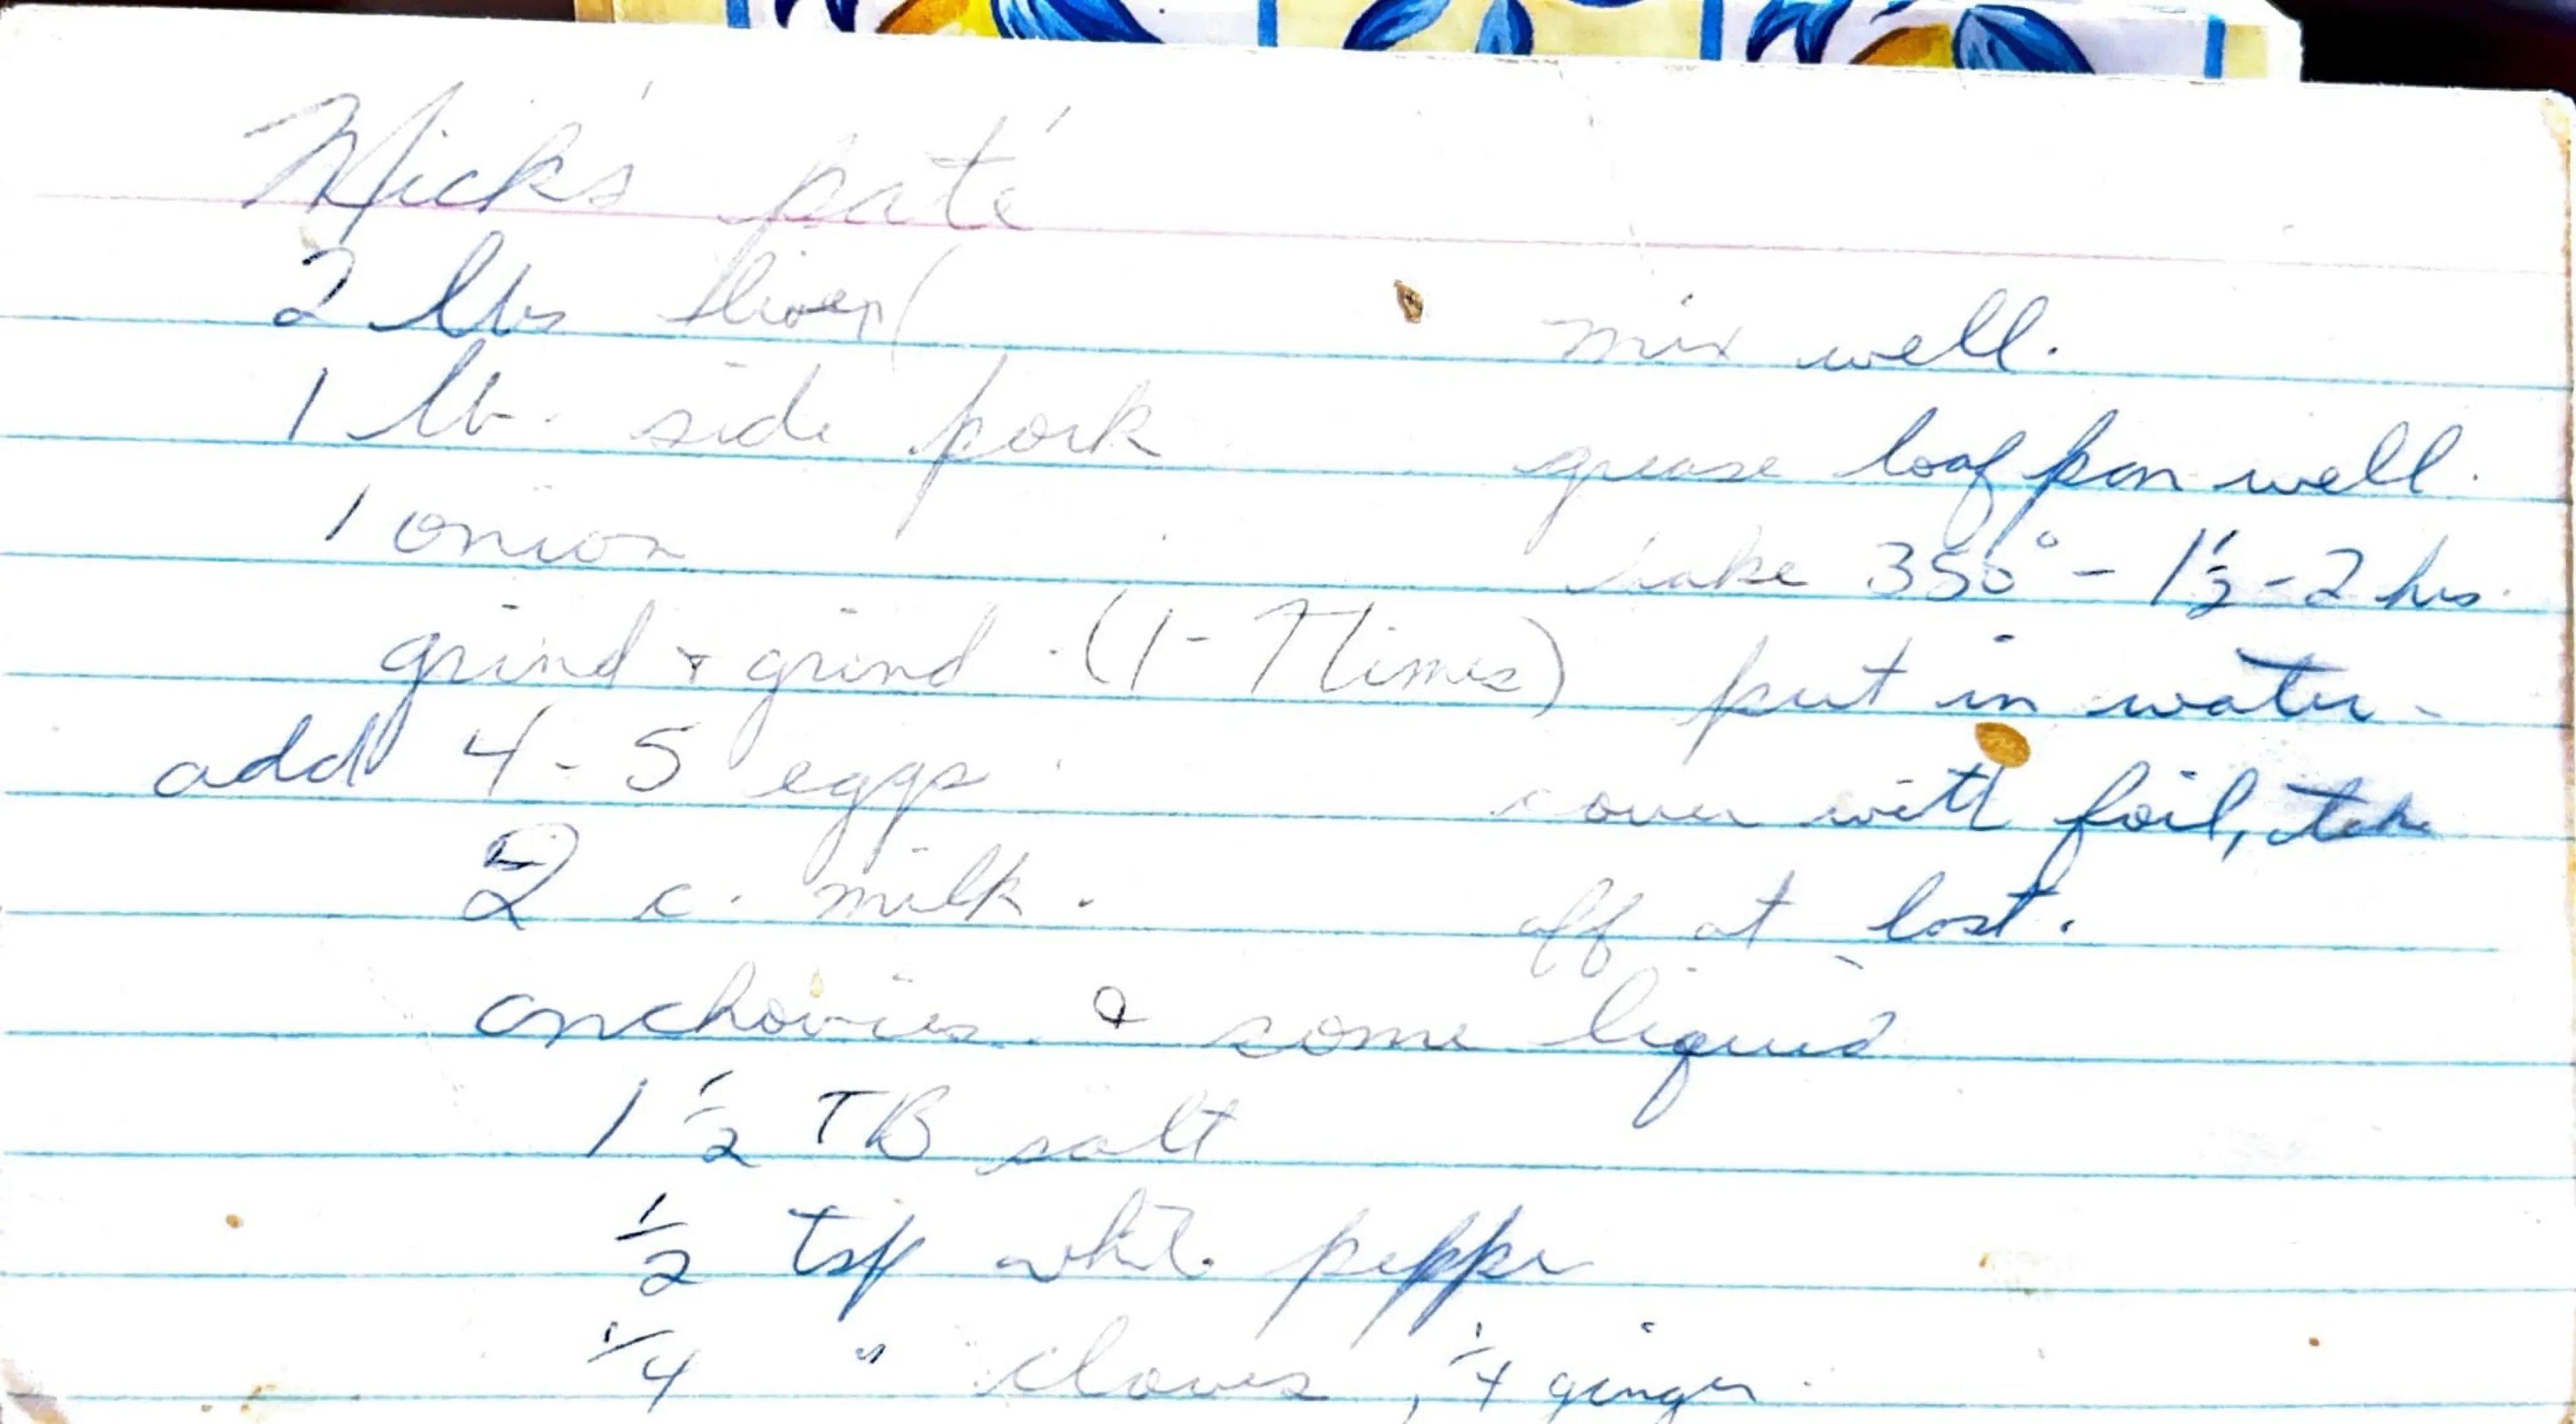 Nick's paté
2 lbs liver (
1 lb. side pork
1 onion
grind + grind (1-7 times)
add 4-5 eggs
2 c. milk.
anchovies & some liquid
1 1/2 TB salt
1/2 tsp wht. pepper
1/4 " cloves, 1/4 ginger.
mix well.
grease loaf pan well.
bake 350° - 1 1/2 - 2 hrs.
put in water -
cover with foil, take
off at last.